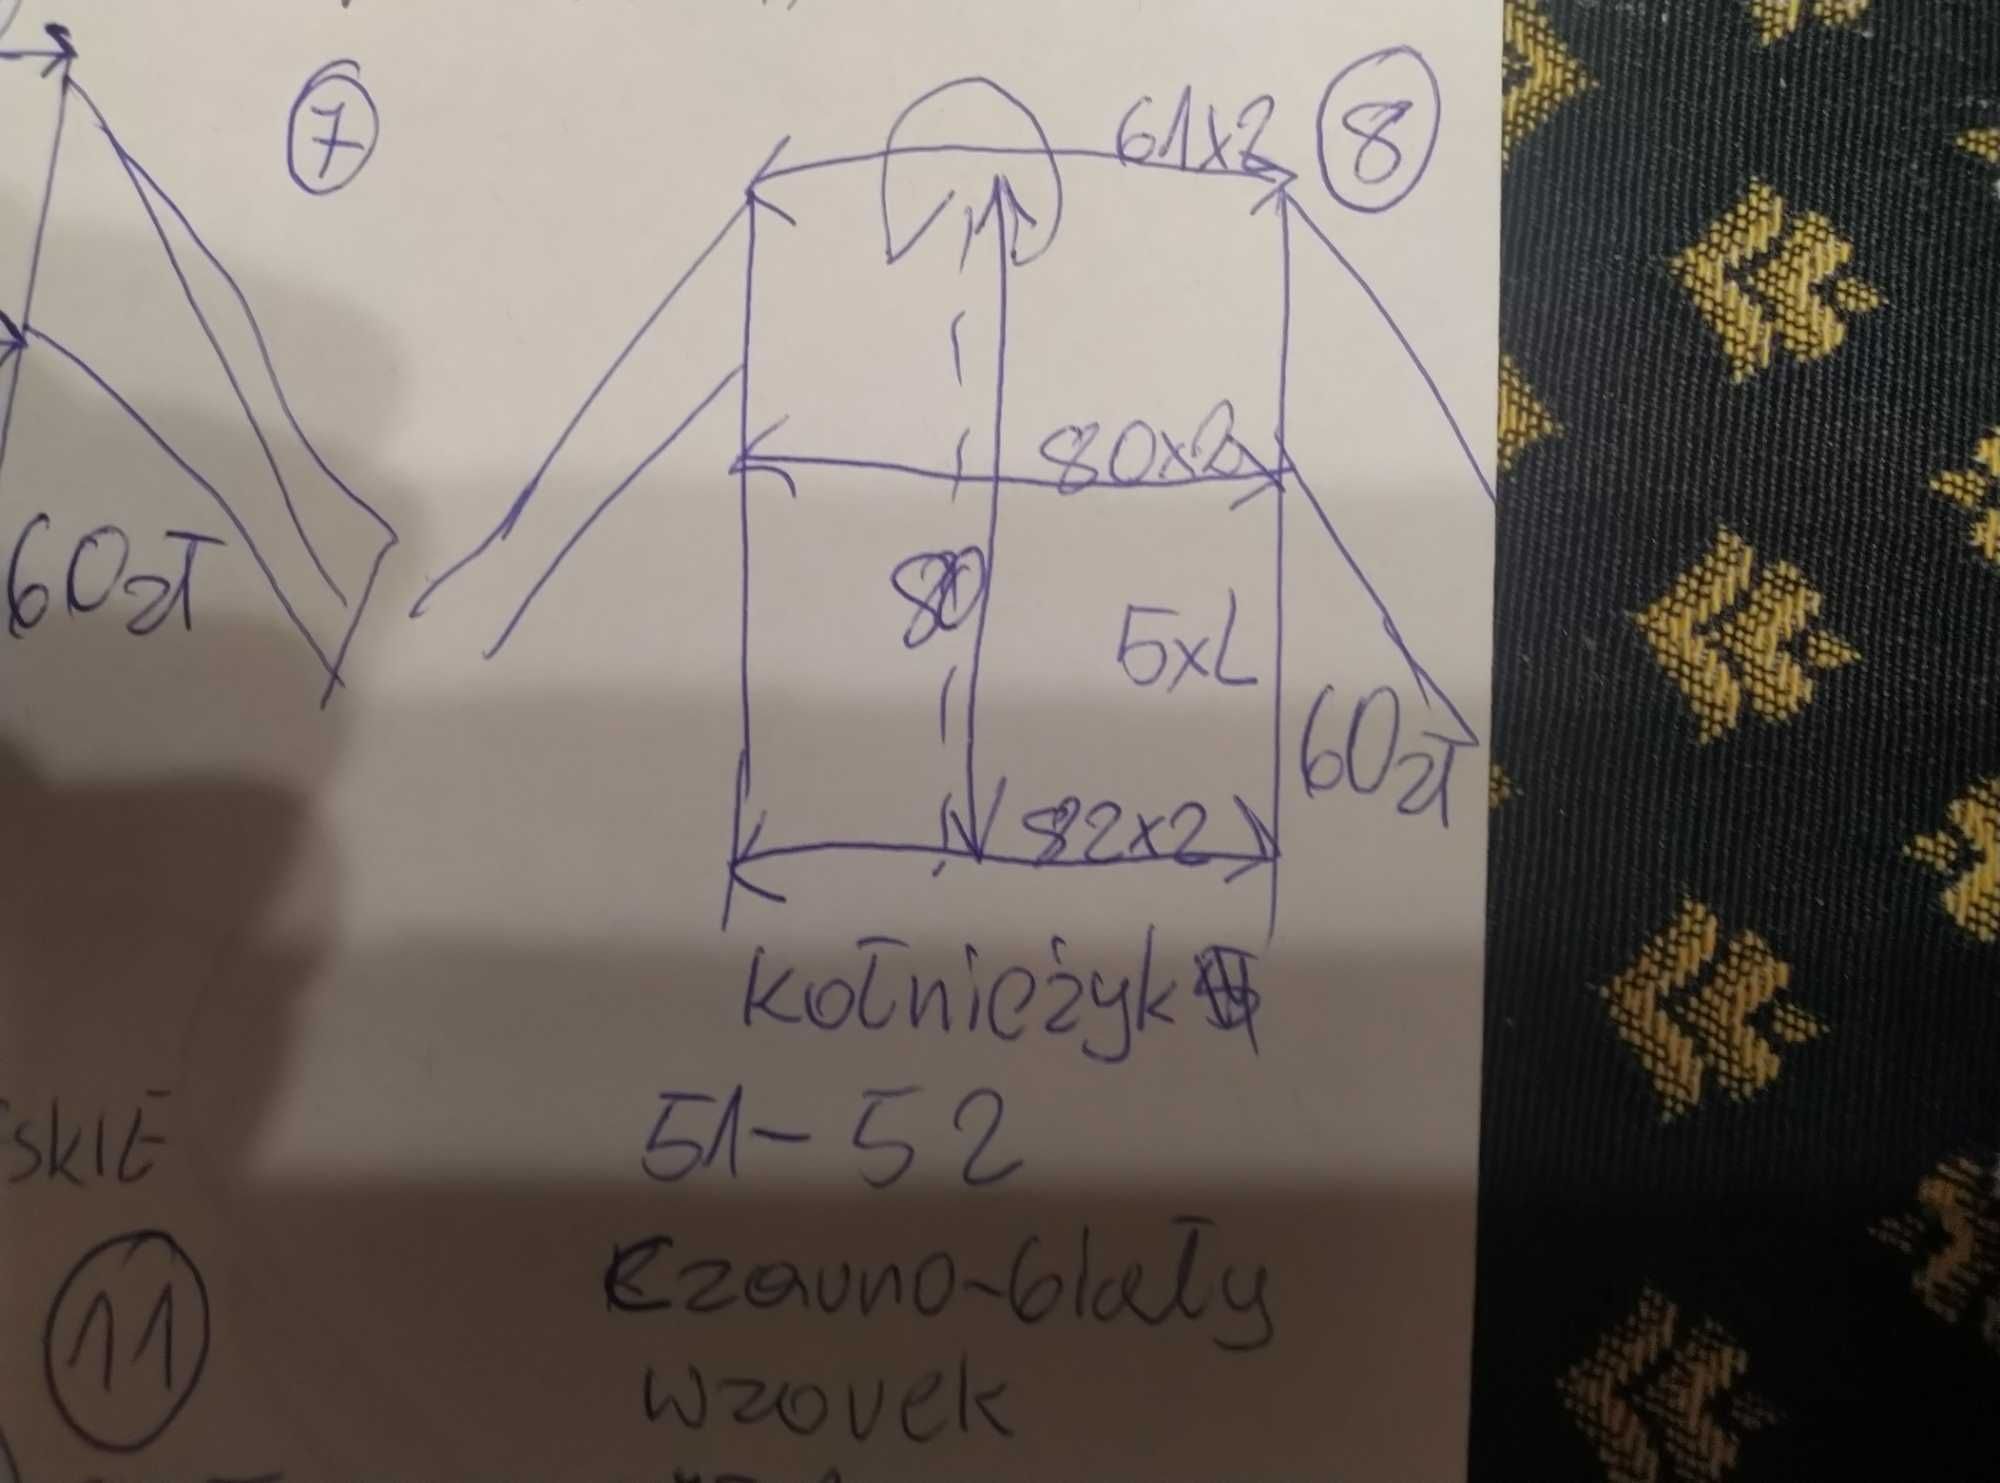 7
61x2
8
80x2
80
5xL
60zł
60zł
82x2
Kołnieżyk
51-52
SKIE
11
Czarno-biały
wzorek